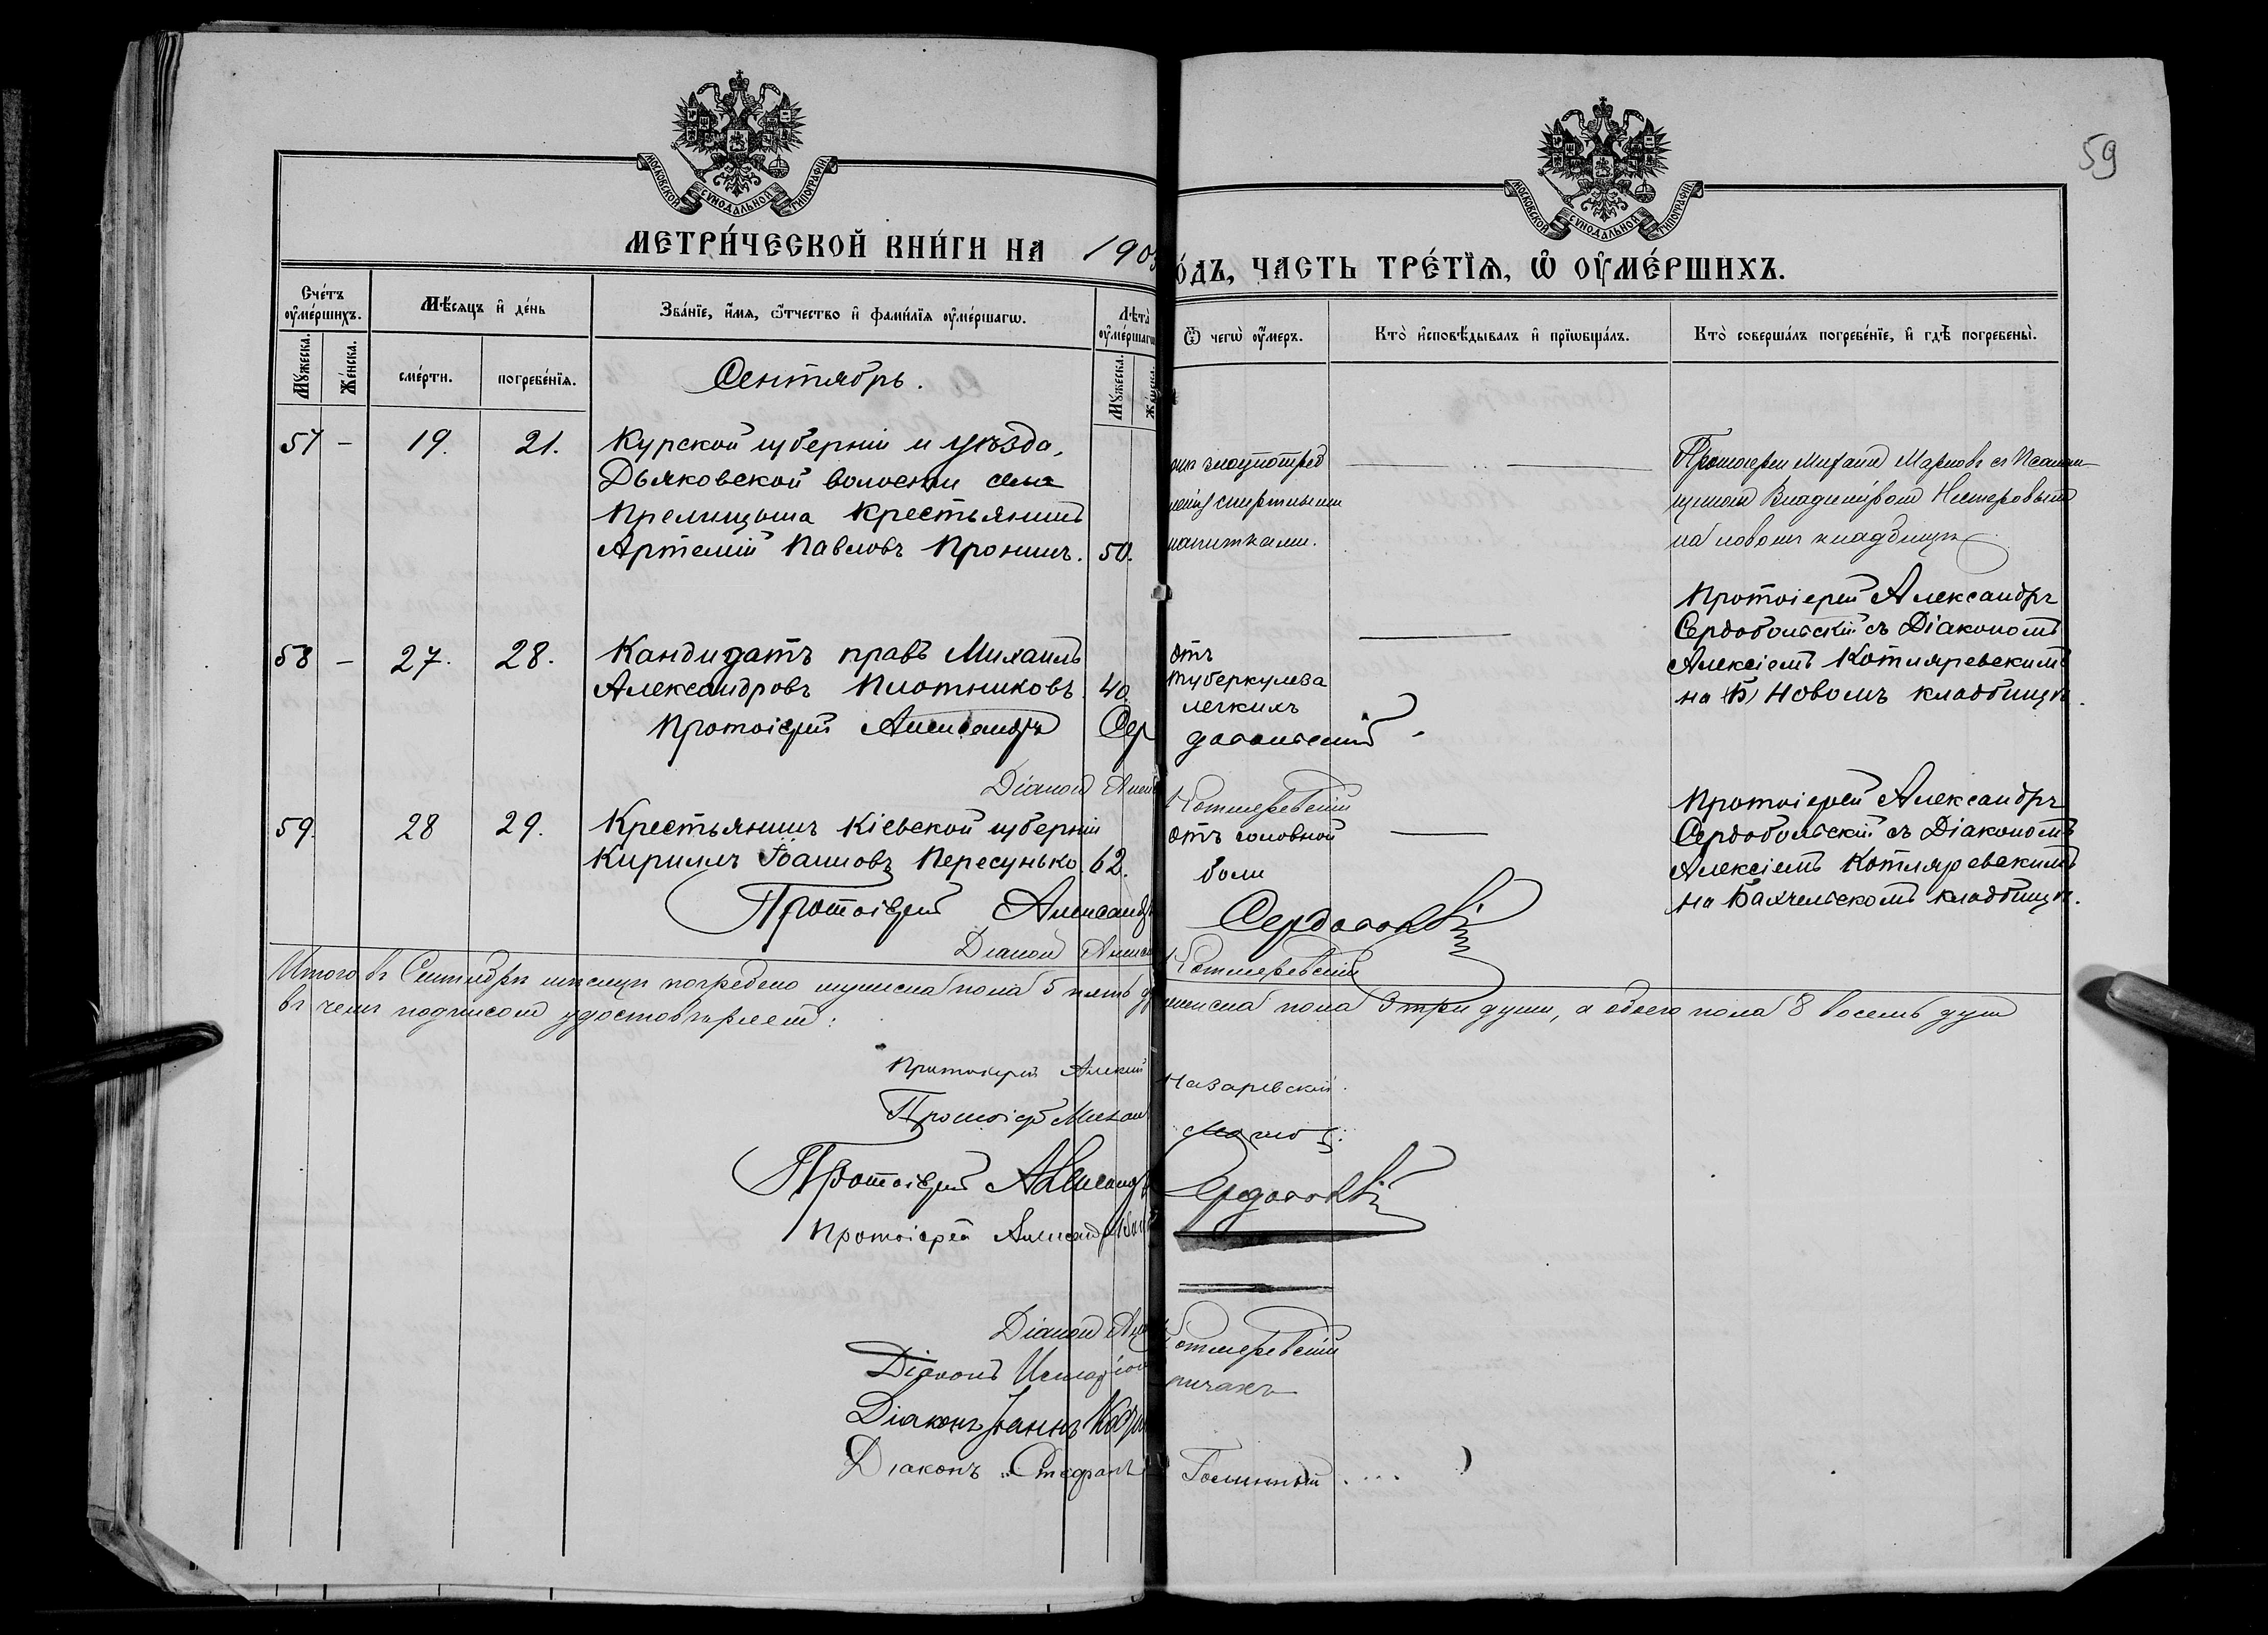 59
МОСКОВСКОЙ СѴНОДАЛЬНОЙ ТИПОГРАФІИ
МОСКОВСКОЙ СѴНОДАЛЬНОЙ ТИПОГРАФІИ
МЕТРИ́ЧЕСКОЙ КНИ́ГИ НА 190
О́ДЪ, ЧАСТЬ ТРЕ́ТЇѦ, Ѡ ОУ҆МЕ́РШИХЪ.
Сче́тъ оу҆ме́ршихъ.
Мꙋ́жеска.
Же́нска.
Мѣ́сяцъ и҆ де́нь
сме́рти.
погребе́нїѧ.
Зва́нїе, и҆́мѧ, ѻ҆́тчество и҆ фами́лїѧ оу҆ме́ршагѡ.
Лѣта̀ оу҆ме́ршагѡ
Мꙋ́жеска.
Ѿ чегѡ̀ оу҆́меръ.
Кто̀ и҆сповѣ́дывалъ и҆ прїѡбща́лъ.
Кто̀ соверша́лъ погребе́нїе, и҆ гдѣ̀ погребены̀.
Сентябрь.
57 – 19. 21. Курской губерніи и уѣзда,
Дьяковской волости села
крестьянинъ
Артемій Павловъ Пронинъ. 50.
злоупотреб
спиртными
напитками.
Протоіерей Михаилъ Марковъ съ Псалом-
щикомъ Владиміромъ Нестеровымъ
на новомъ кладбищѣ
58 – 27. 28. Кандидатъ правъ Михаилъ
Александровъ Плотниковъ 40
отъ
туберкулеза
легкихъ
Протоіерей Александръ
Сердобольскій съ Діакономъ
Алексіемъ Котляревскимъ
на (Б) Новомъ кладбищѣ.
Протоіерей Александръ Сердобольскій
Діаконъ Алексій Котляревскій
59. 28 29. Крестьянинъ Кіевской губерніи
Кириллъ Іоанновъ Пересунько. 62.
отъ головной
боли
Протоіерей Александръ
Сердобольскій съ Діакономъ
Алексіемъ Котляревскимъ
на Бахчельскомъ кладбищѣ.
Протоіерей Александръ Сердобольскій
Діаконъ Алексій Котляревскій
Итого въ Сентябрѣ мѣсяцѣ погребено мужеска пола 5 пять женска пола 3 три души, а обоего пола 8 восемь душ
въ чемъ подписомъ удостовѣряемъ:
Протоіерей Алексій Назаревскій.
Протоіерей Михаилъ Марковъ
Протоіерей Александръ Сердобольскій
Протоіерей Александръ
Діаконъ Котляревскій
Діаконъ
Діаконъ Іоаннъ
Діаконъ Стефанъ Голинный